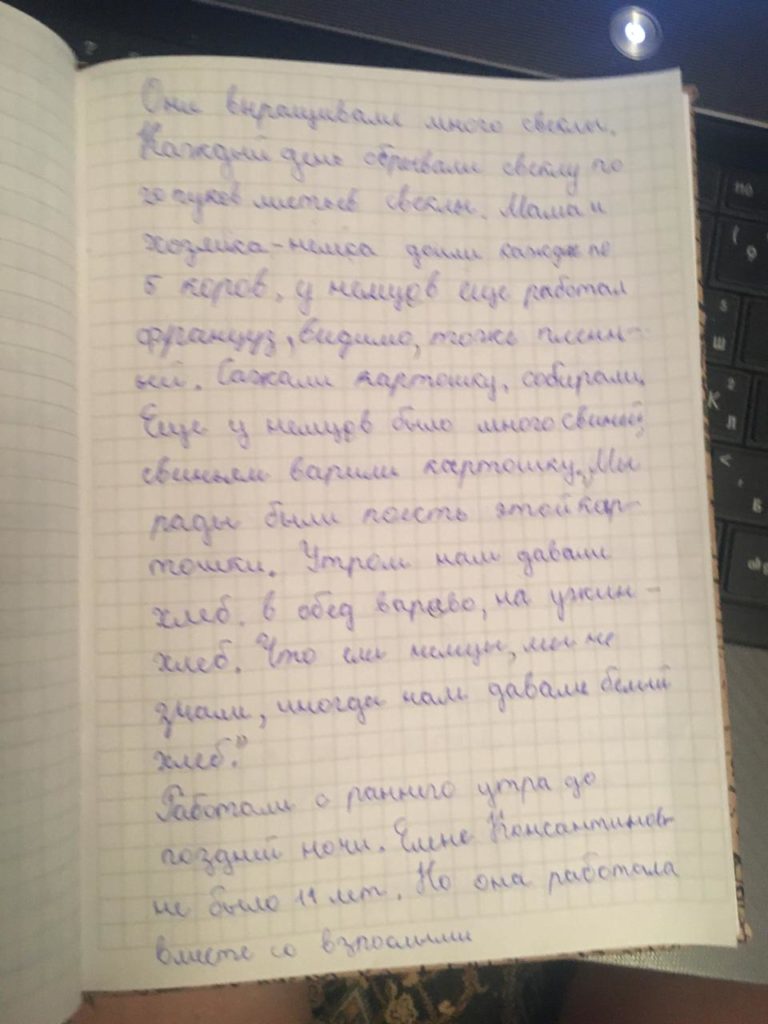 Они выращивали много свеклы.
Каждый день обрывали свеклу по
20 пуков листьев свеклы. Мама и
хозяйка-немка доили каждая по
5 коров, у немцов еще работал
француз, видимо, тоже пленн-
ный. Сажали картошку, собирали,
Еще у немцов было много свиней,
свиньям варили картошку. Мы
рады были поесть этой кар-
тошки. Утром нам давали
хлеб. в обед варево, на ужин -
хлеб. Что ели немцы, мы не
знали, иногда нам давали белый
хлеб."
Работали с раннего утра до
поздней ночи. Елене Консантинов-
не было 11 лет. Но она работала
вместе со взрослыми
ш
л
в